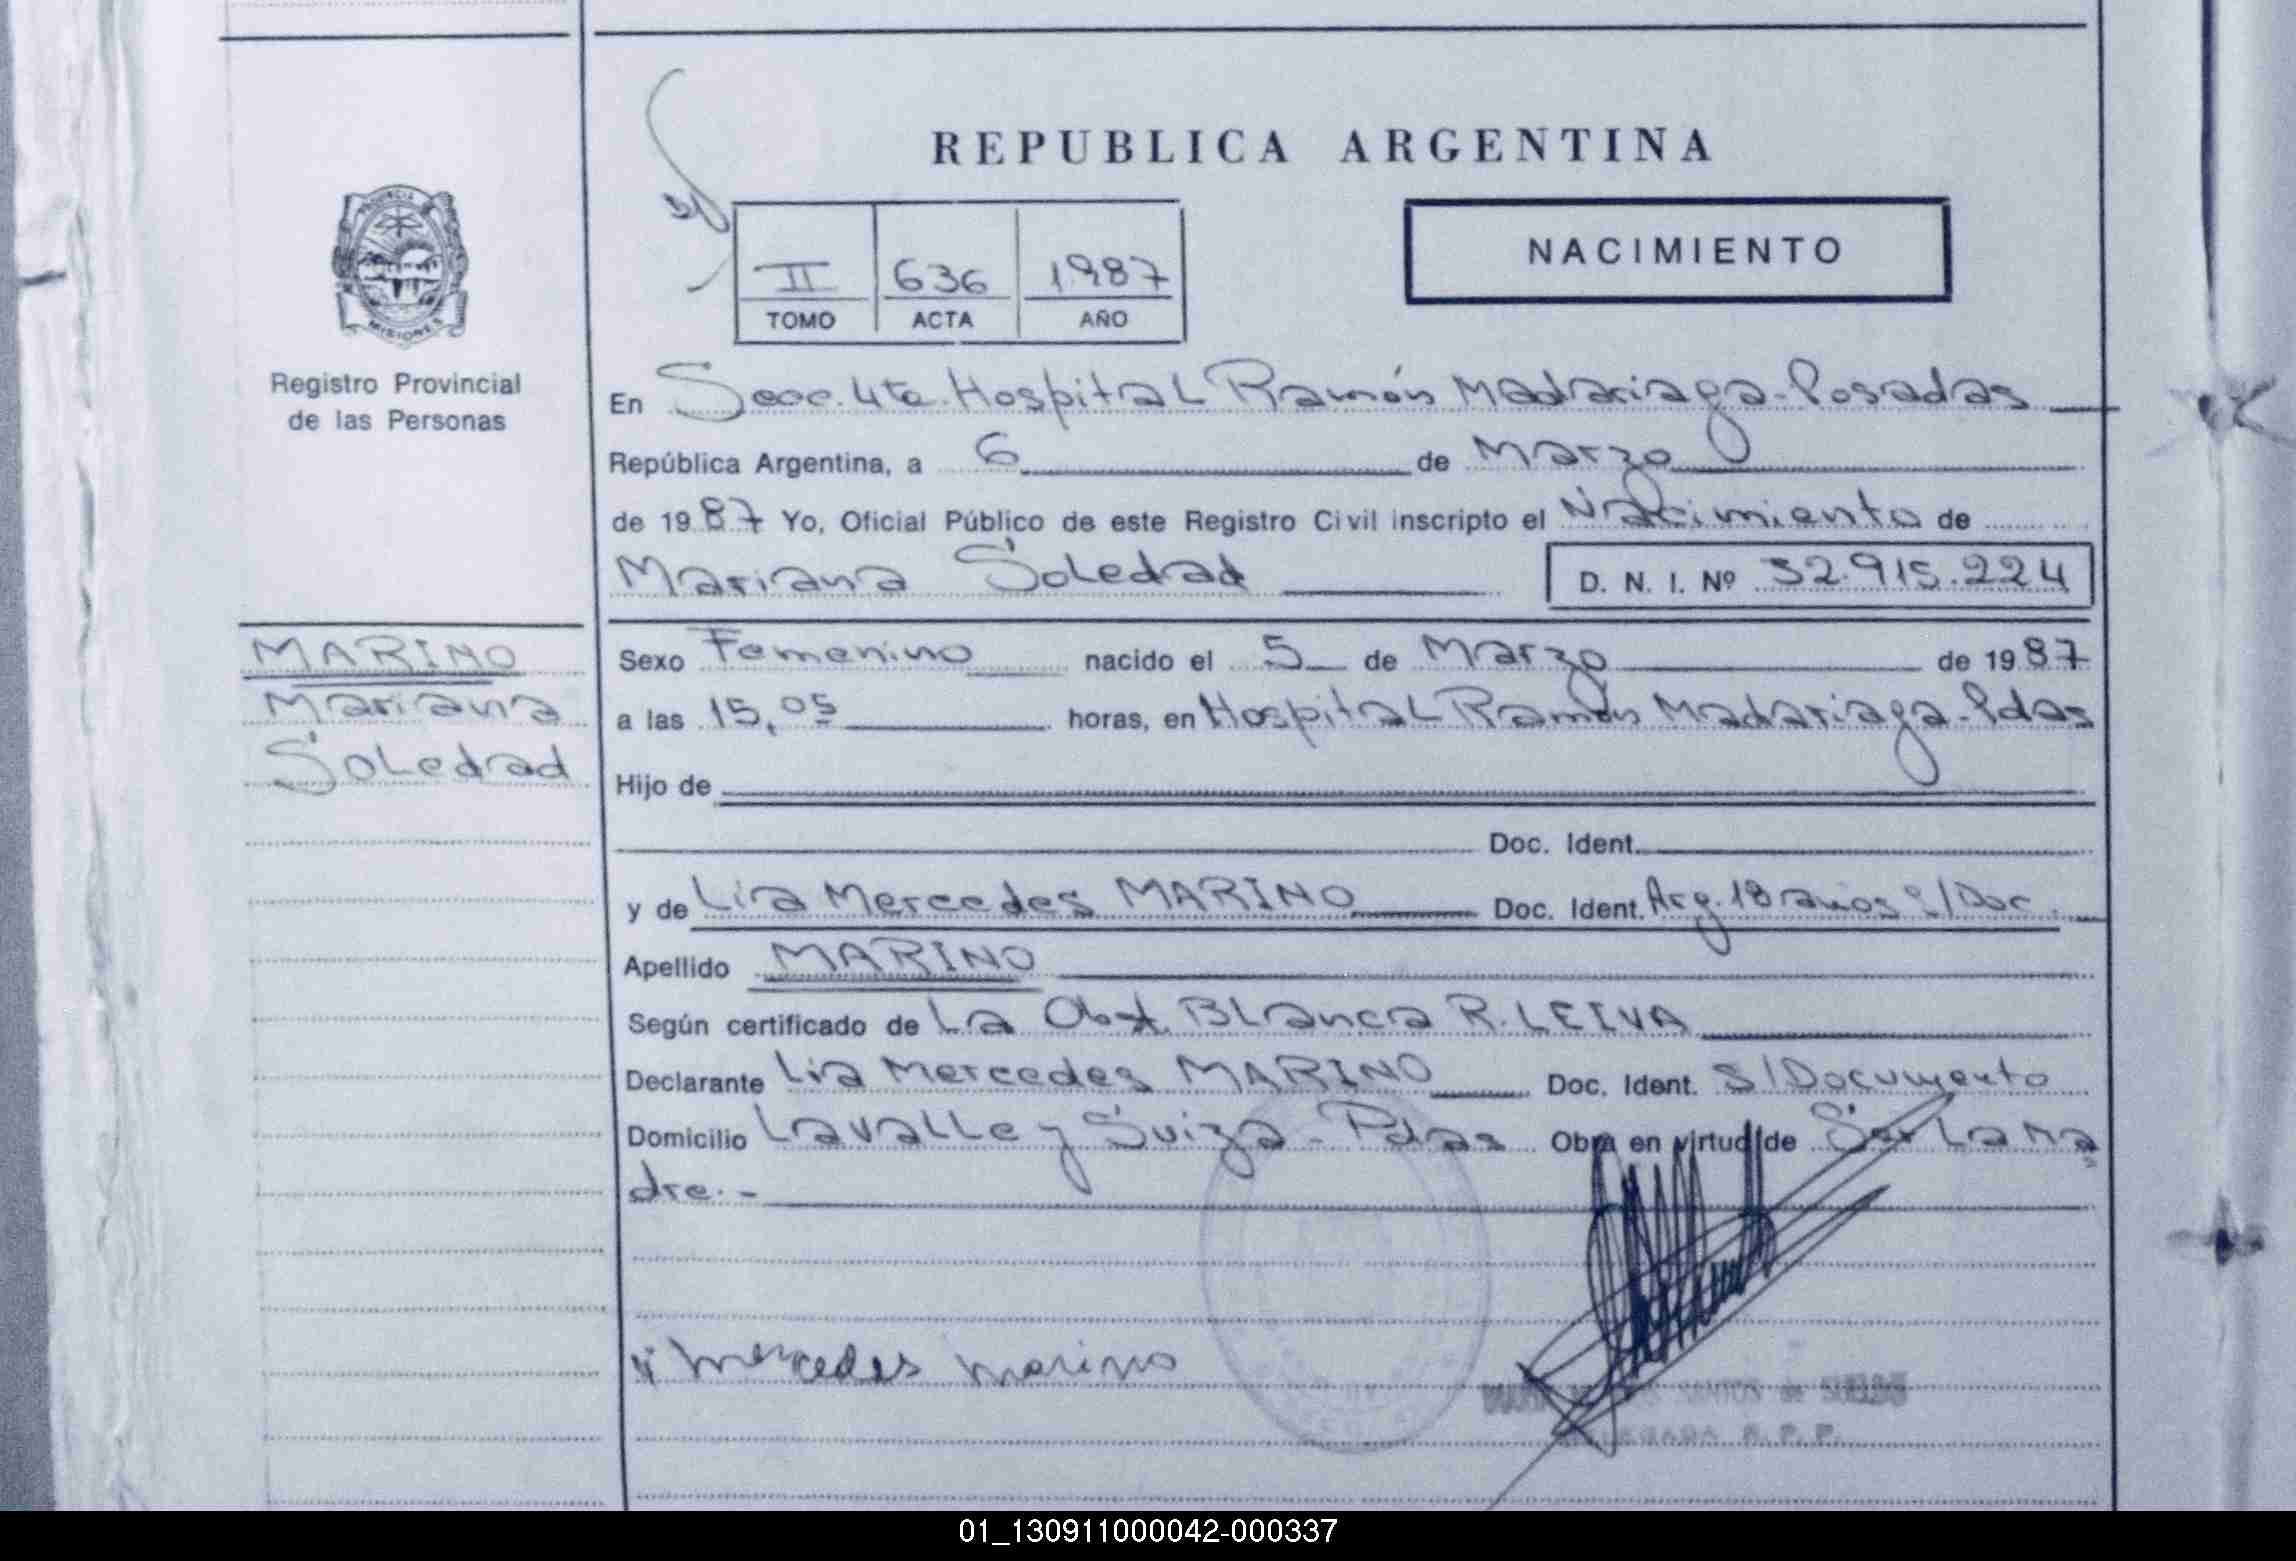 REPUBLICA ARGENTINA
NACIMIENTO
II 636 1987
TOMO ACTA AÑO
PROVINCIA
MISIONES
Registro Provincial
de las Personas
En Secc. 4ta. Hospital Ramón Madariaga - Posadas
República Argentina, a 6 de Marzo
de 1987 Yo, Oficial Público de este Registro Civil inscripto el Nacimiento de
Mariana Soledad D. N. I. Nº 32.915.224
MARINO
Mariana
Soledad
Sexo Femenino nacido el 5 de Marzo de 1987
a las 15,05 horas, en Hospital Ramón Madariaga - Pdas
Hijo de
Doc. Ident.
y de Lia Mercedes MARINO Doc. Ident. Arg. 18 años s/Doc.
Apellido MARINO
Según certificado de La Obst. Blanca R. LEIVA
Declarante Lia Mercedes MARINO Doc. Ident. S/Documento
Domicilio Lavalle y Suiza - Pdas Obra en virtud de Ser La Ma
dre. -
Mercedes Marino
R.P.P.
01_130911000042-000337